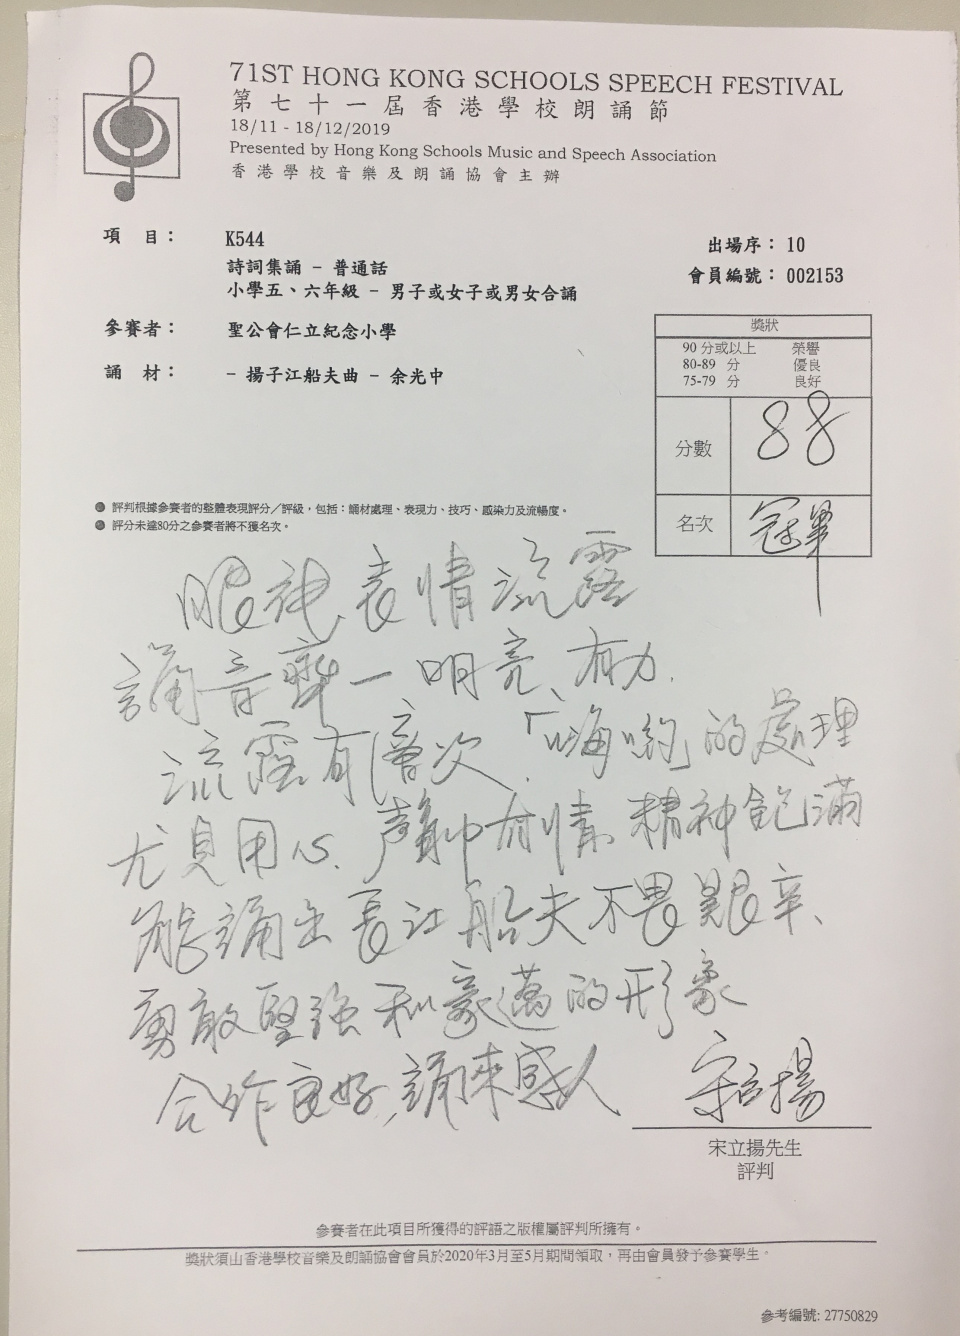 71ST HONG KONG SCHOOLS SPEECH FESTIVAL
第七十一屆香港學校朗誦節
18/11 - 18/12/2019
Presented by Hong Kong Schools Music and Speech Association
香港學校音樂及朗誦協會主辦
項 目： K544 出場序： 10
詩詞集誦 - 普通話 會員編號： 002153
小學五、六年級 - 男子或女子或男女合誦
參賽者： 聖公會仁立紀念小學
誦 材： - 揚子江船夫曲 - 余光中
獎狀
90 分或以上 榮譽
80-89 分 優良
75-79 分 良好
分數 88
名次 冠軍
● 評判根據參賽者的整體表現評分／評級，包括：誦材處理、表現力、技巧、感染力及流暢度。
● 評分未達80分之參賽者將不獲名次。
眼神、表情流露
誦音齊一明亮、有力.
流露有層次.「嗨喲」的處理
尤見用心、聲中有情、精神飽滿
能誦出長江船夫不畏艱辛、
勇敢堅強和豪邁的形象
合作良好,誦來感人
宋立揚
宋立揚先生
評判
參賽者在此項目所獲得的評語之版權屬評判所擁有。
獎狀須由香港學校音樂及朗誦協會會員於2020年3月至5月期間領取，再由會員發予參賽學生。
參考編號: 27750829